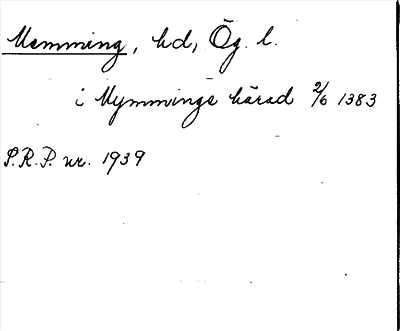 Memming, hd, Ög. l.
i Mymmings härad 2/6 1383
S.R.P. nr. 1939